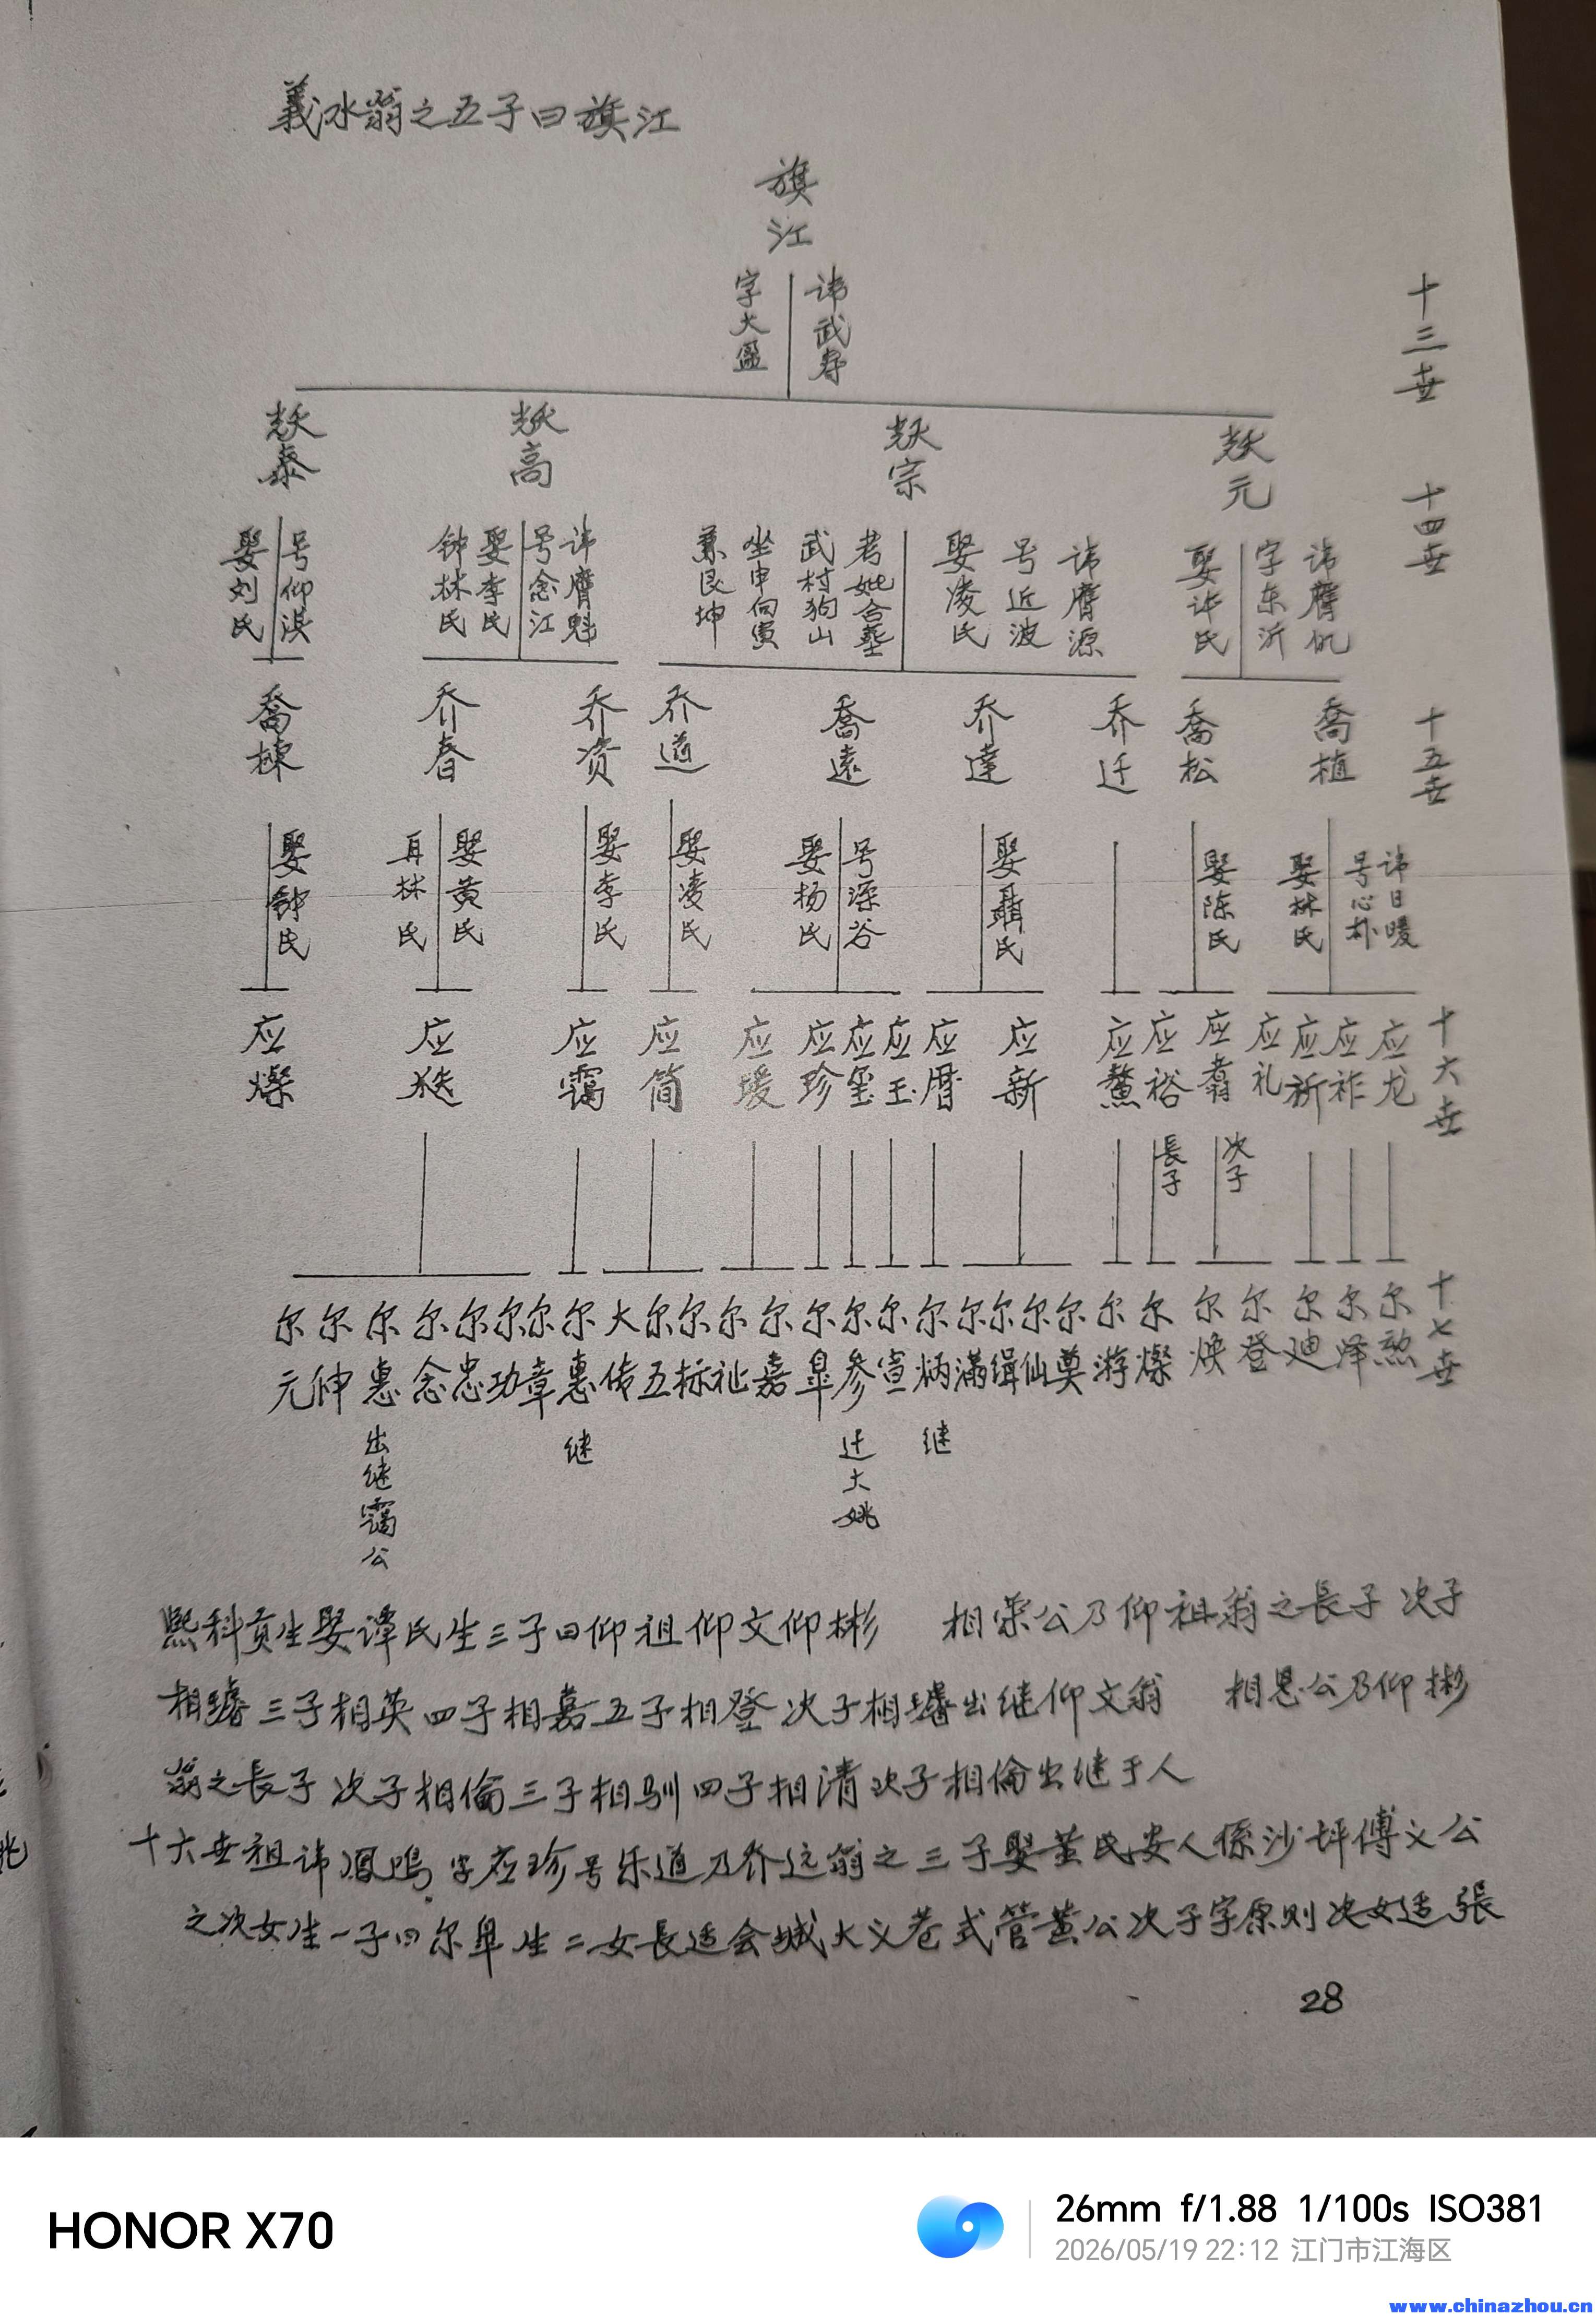 義冰翁之五子曰旗江
旗江
十三世
讳武寿
字大盈
十四世
元
宗
高
泰
讳膺仉
字东沂
娶许氏
讳膺源
号近波
娶凌氏
考妣合葬
武村狗山
坐申向寅
兼艮坤
讳膺魁
号念江
娶李氏
钟林氏
号仰淇
娶刘氏
十五世
喬植
喬松
乔迁
乔達
喬遠
乔道
乔资
乔春
喬棟
讳日暖
号心朴
娶林氏
娶陈氏
娶聶氏
号深谷
娶杨氏
娶凌氏
娶李氏
娶黄氏
再林氏
娶钟氏
十六世
应龙
应祚
应祈
应礼
应翥
应裕
应鰲
应新
应曆
应玉
应玺
应珍
应瑗
应简
应霭
应
应燦
次子
長子
十七世
尔
尔泽
尔迪
尔登
尔焕
尔燦
尔游
尔奠
尔仙
尔缉
尔满
尔炳
尔宣
尔参
尔皐
尔嘉
尔祉
尔标
尔五
大传
尔惠
尔章
尔功
尔忠
尔念
尔惠
尔伸
尔元
继
迁大姚
继
出继霭公
熙科贡生娶谭氏生三子曰仰祖仰文仰彬 相荣公乃仰祖翁之長子 次子
相璿三子相英四子相嘉五子相登次子相璿出继仰文翁 相恩公乃仰彬
翁之長子次子相倫三子相驯四子相清次子相倫出继于人
十六世祖讳凤鸣字应珍号乐道乃乔远翁之三子娶黄氏安人係沙坪傅义公
之次女生一子曰尔皐生二女長适会城大义巷式管黄公次子字原则次女适張
28
HONOR X70
26mm f/1.88 1/100s ISO381
2026/05/19 22:12 江门市江海区
www.chinazhou.cn